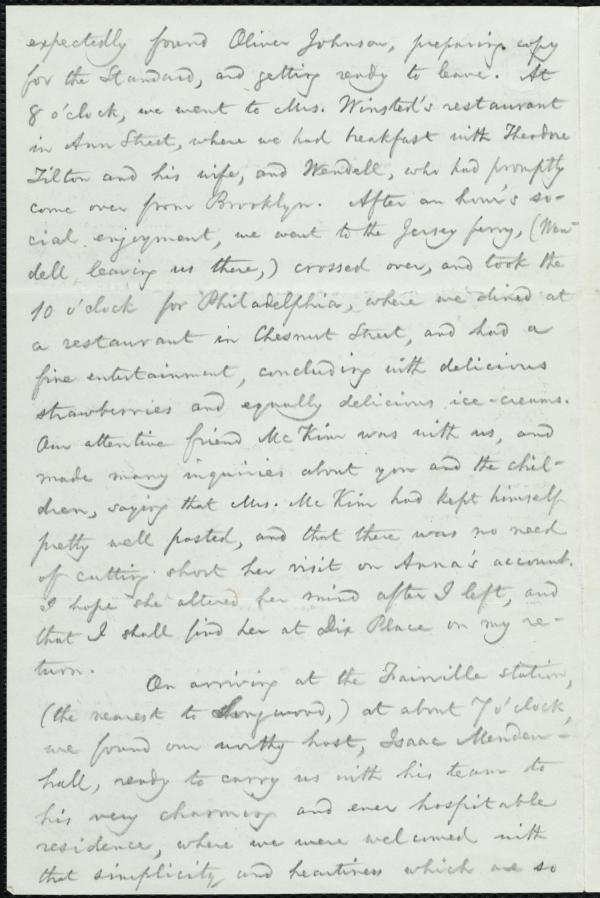 expectedly found Oliver Johnson, preparing copy
for the Standard, and getting ready to leave. At
8 o'clock, we went to Mrs. Winsted's restaurant
in Ann Street, where we had breakfast with Theodore
Tilton and his wife, and Wendell, who had promptly
come over from Brooklyn. After an hour's so-
cial enjoyment, we went to the Jersey ferry, (Wen-
dell leaving us there,) crossed over, and took the
10 o'clock for Philadelphia, where we dined at
a restaurant in Chesnut Street, and had a
fine entertainment, concluding with delicious
strawberries and equally delicious ice-creams.
Our attentive friend McKim was with us, and
made many inquiries about you and the chil-
dren, saying that Mrs. McKim had kept himself
pretty well posted, and that there was no need
of cutting short her visit on Anna's account.
I hope she altered her mind after I left, and
that I shall find her at Dix Place on my re-
turn.
On arriving at the Fairville station,
(the nearest to Longwood,) at about 7 o'clock,
we found our worthy host, Isaac Menden-
hall, ready to carry us with his team to
his very charming and ever hospitable
residence, where we were welcomed with
that simplicity and heartiness which are so